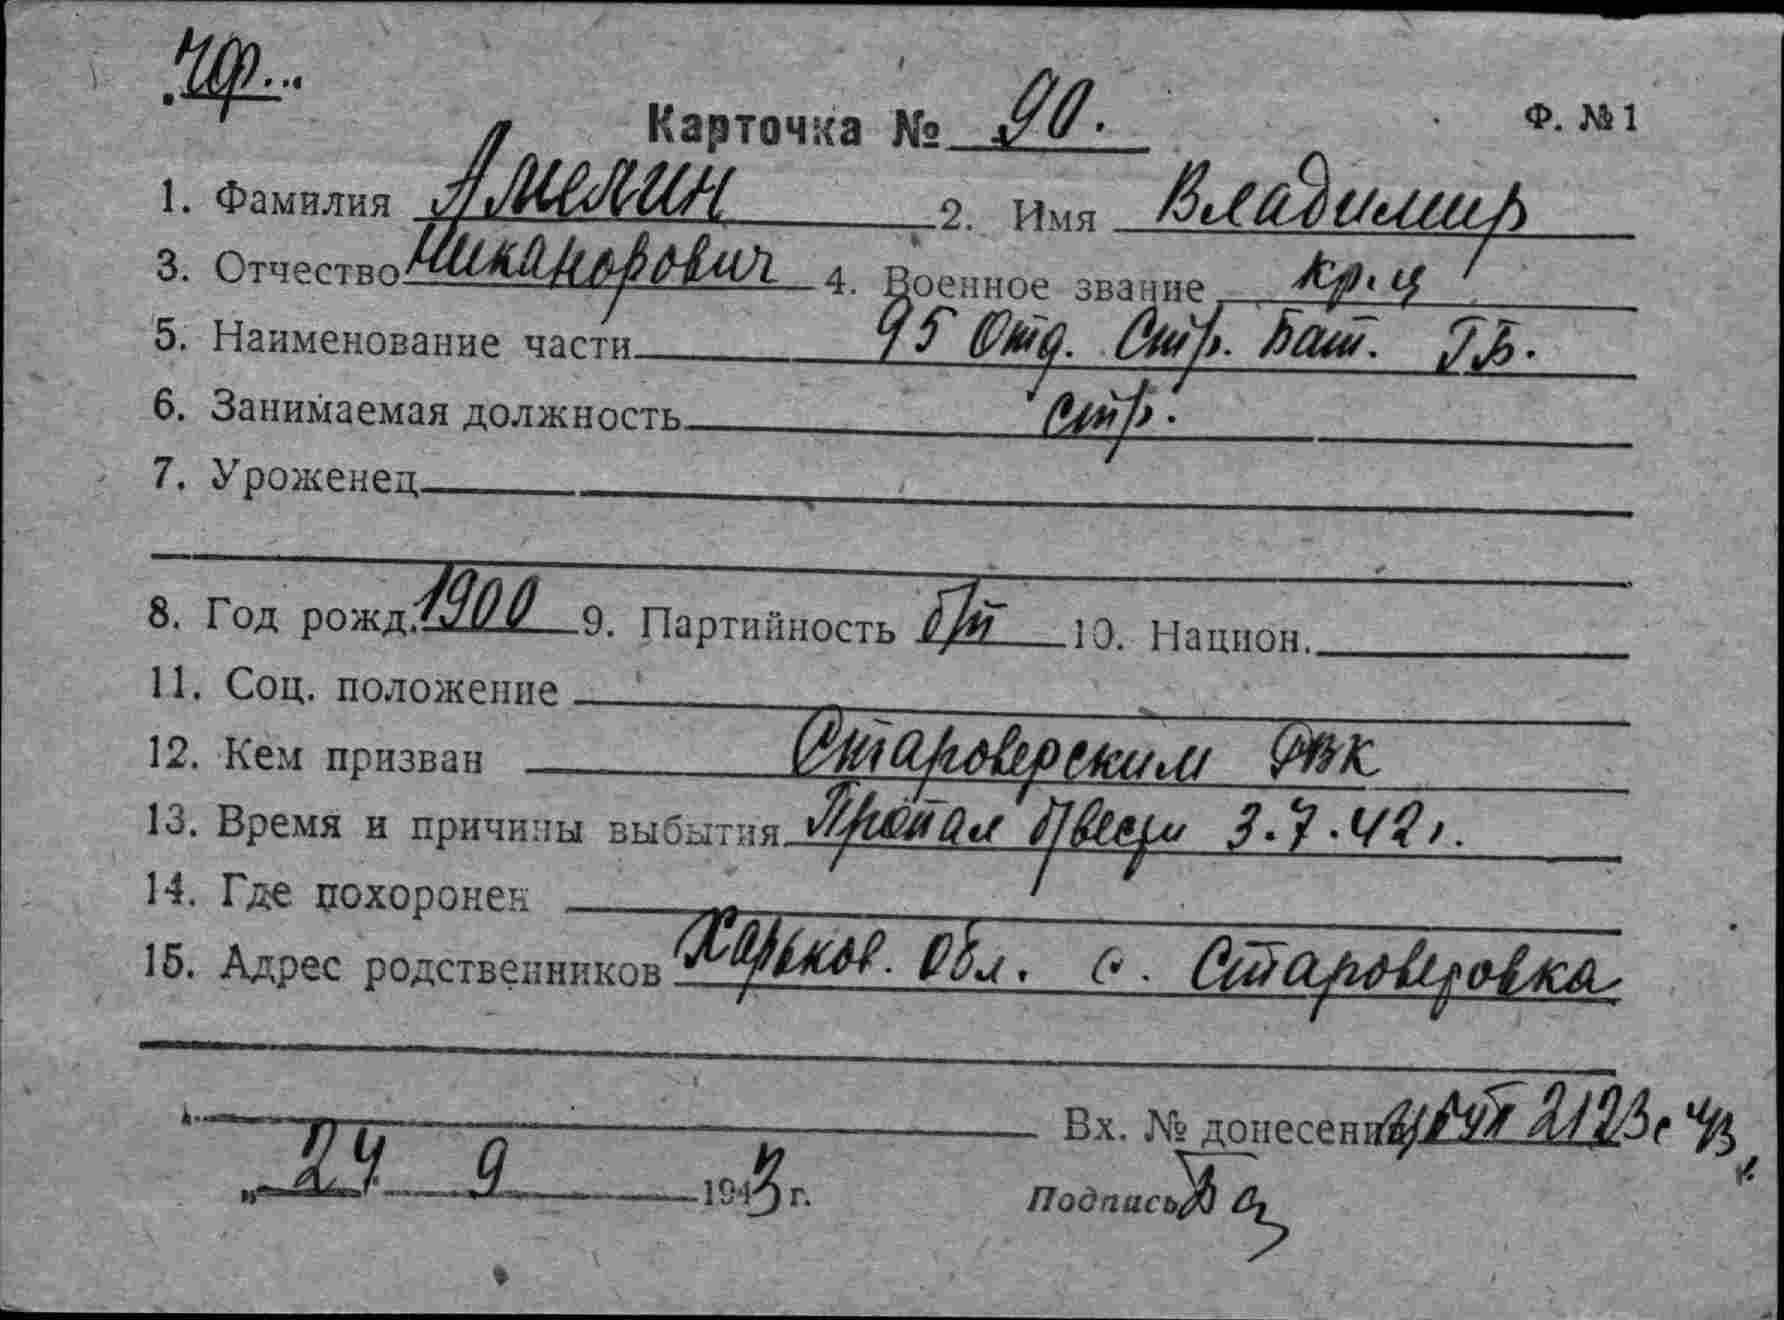 Карточка № 90.
Ф. №1
1. Фамилия Амелин 2. Имя Владимир
3. Отчество Никанорович 4. Военное звание кр-ц
5. Наименование части 95 Отд. Стр. Бат. ГБ.
6. Занимаемая должность стр.
7. Уроженец
8. Год рожд. 1900 9. Партийность б/п 10. Национ.
11. Соц. положение
12. Кем призван Староверским РВК
13. Время и причины выбытия Пропал б/вести 3.7.42г.
14. Где похоронен
15. Адрес родственников Харьков. Обл. с. Староверовка
Вх. № донесения 2123с 43
„24 9 1943 г.
Подпись